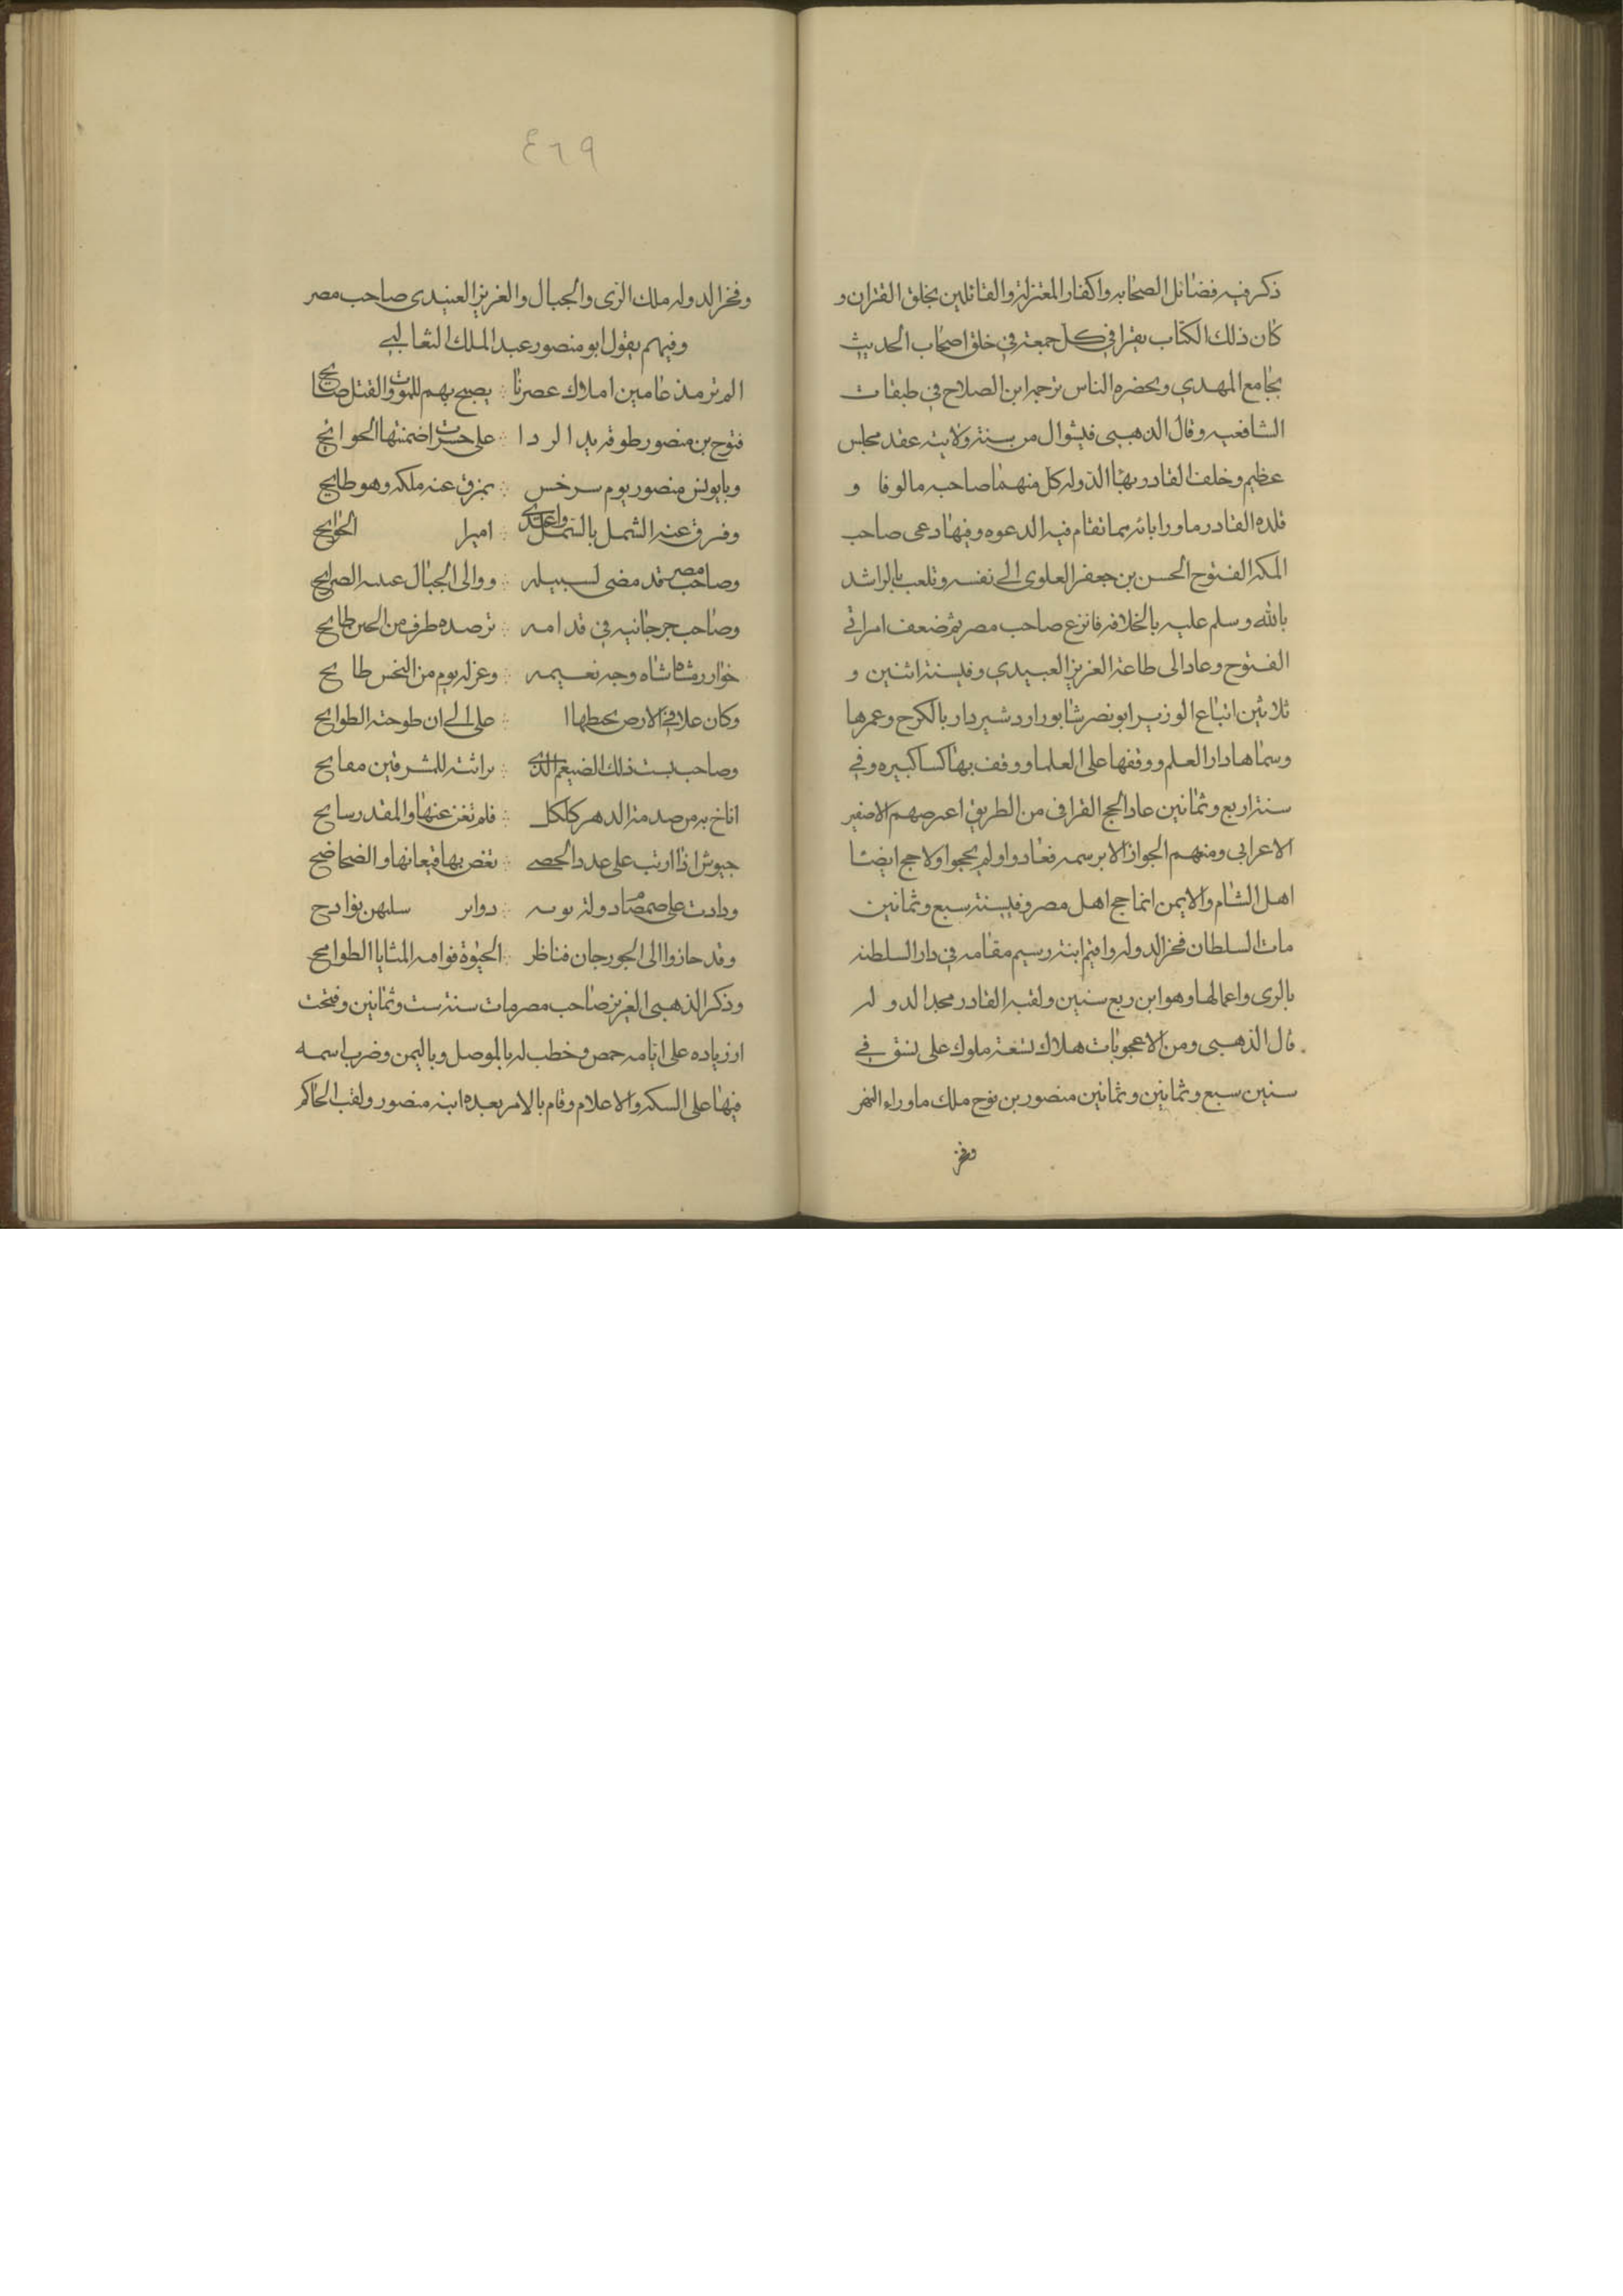 ذكر فيه فضائل الصحابه واكفار المعتزلة والقائلين بخلق القران و
كان ذلك الكتاب يقرا في كل جمعة في خلق اصحاب الحديث
بجامع المهدي وبحضره الناس ترجمه ابن الصلاح في طبقات
الشافعيه وقال الذهبي في شوال من سنة ولايته عقد مجلس
عظيم وخلف القادر بهاا الدوله كل منهما صاحبه مالوفا و
قلده القادر ماورا بابه بما تقام فيه الدعوه وفيها دعى صاحب
المكه الفتوح الحسن بن جعفر العلوى الى نفسه وتلعب بالراشد
بالله وسلم عليه بالخلافه فانزع صاحب مصر ثم ضعف امراتي
الفتوح وعاد الى طاعة العزيز العبيدي وفي سنة اثنين و
ثلاثين اتباع الوزير ابو نصر شابور اردشير دار بالكرح وعمرها
وسماها دار العلم ووقفها على العلما ووقف بها كسا كبيره وفي
سنة اربع وثمانين عاد الحج القرافى من الطريق اعرصهم الاصفير
الاعرابى ومنهم الجواز الا برسمه فعادوا ولم يحجوا ولا حج ايضا
اهل الشام والايمن انما حج اهل مصر وفي سنة سبع وثمانين
مات السلطان فخر الدوله واقيم ابنه رسيم مقامه في دار السلطنه
بالرى واعمالها وهو ابن ربع سنين ولقبه القادر مجد الدو له
قال الذهبي ومن الاعجوبات هلاك تسعة ملوك على نسق في
سنين سبع وثمانين وثمانين منصور بن نوح ملك ماوراء النهر
وفخر
٤٦٩
وفخر الدوله ملك الرى والجبال والعزيز العبيدى صاحب مصر
وفيهم يقول ابو منصور عبد الملك الثعالبي
الم تر مذ عامين املاك عصرنا ∴ يصيح بهم للموت والقتل صائح
فتوح بن منصور طوقه يد الردا ∴ على حسرات ضمنتها الحوانح
وبابوس منصور يوم سرخس ∴ بمزق عنه ملكه وهو طايح
وفرق عنه الشمل بالشمل واغتدى ∴ اميرا الحوايح
وصاحب مصر قد مضى لسبيله ∴ ووالى الجبال الصرايح
وصاحب جرجانيه في قدامه ∴ ترصده طرف من الحين طايح
خوارزمشاه شاه وجه نعيمه ∴ وعزله يوم من النحس طايح
وكان علا في الارض يحطها ا ∴ على الى ان طوحته الطوايح
وصاحب بست ذلك الضيغم الذى ∴ براثنه للمشرقين مفاتح
اناخ به من صدمة الدهر كلكل ∴ فلم تغن عنها والمقدر سايح
جيوش اذا اربت على عدد الحصى ∴ تغص بها قيعانها والضحاضح
ودادت على صمصاد دولة بويه ∴ دواير سلبهن بوادح
وقد حازوا الى الجورجان فناظر ∴ الحيوة فوامه المنايا الطوامح
وذكر الذهبي العزيز صاحب مصر مات سنة ست وثمانين وفتحت
ارزياده على ايامه حمص وخطب له بالموصل وباليمن وضرب اسمه
فيها على السكه والاعلام وقام بالامر بعده ابنه منصور ولقب الحاكم